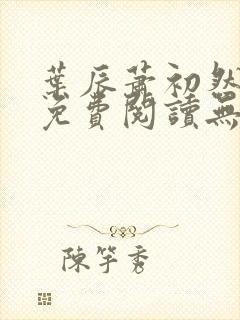 葉辰蕭初然
免費閱讀無
陳竽秀